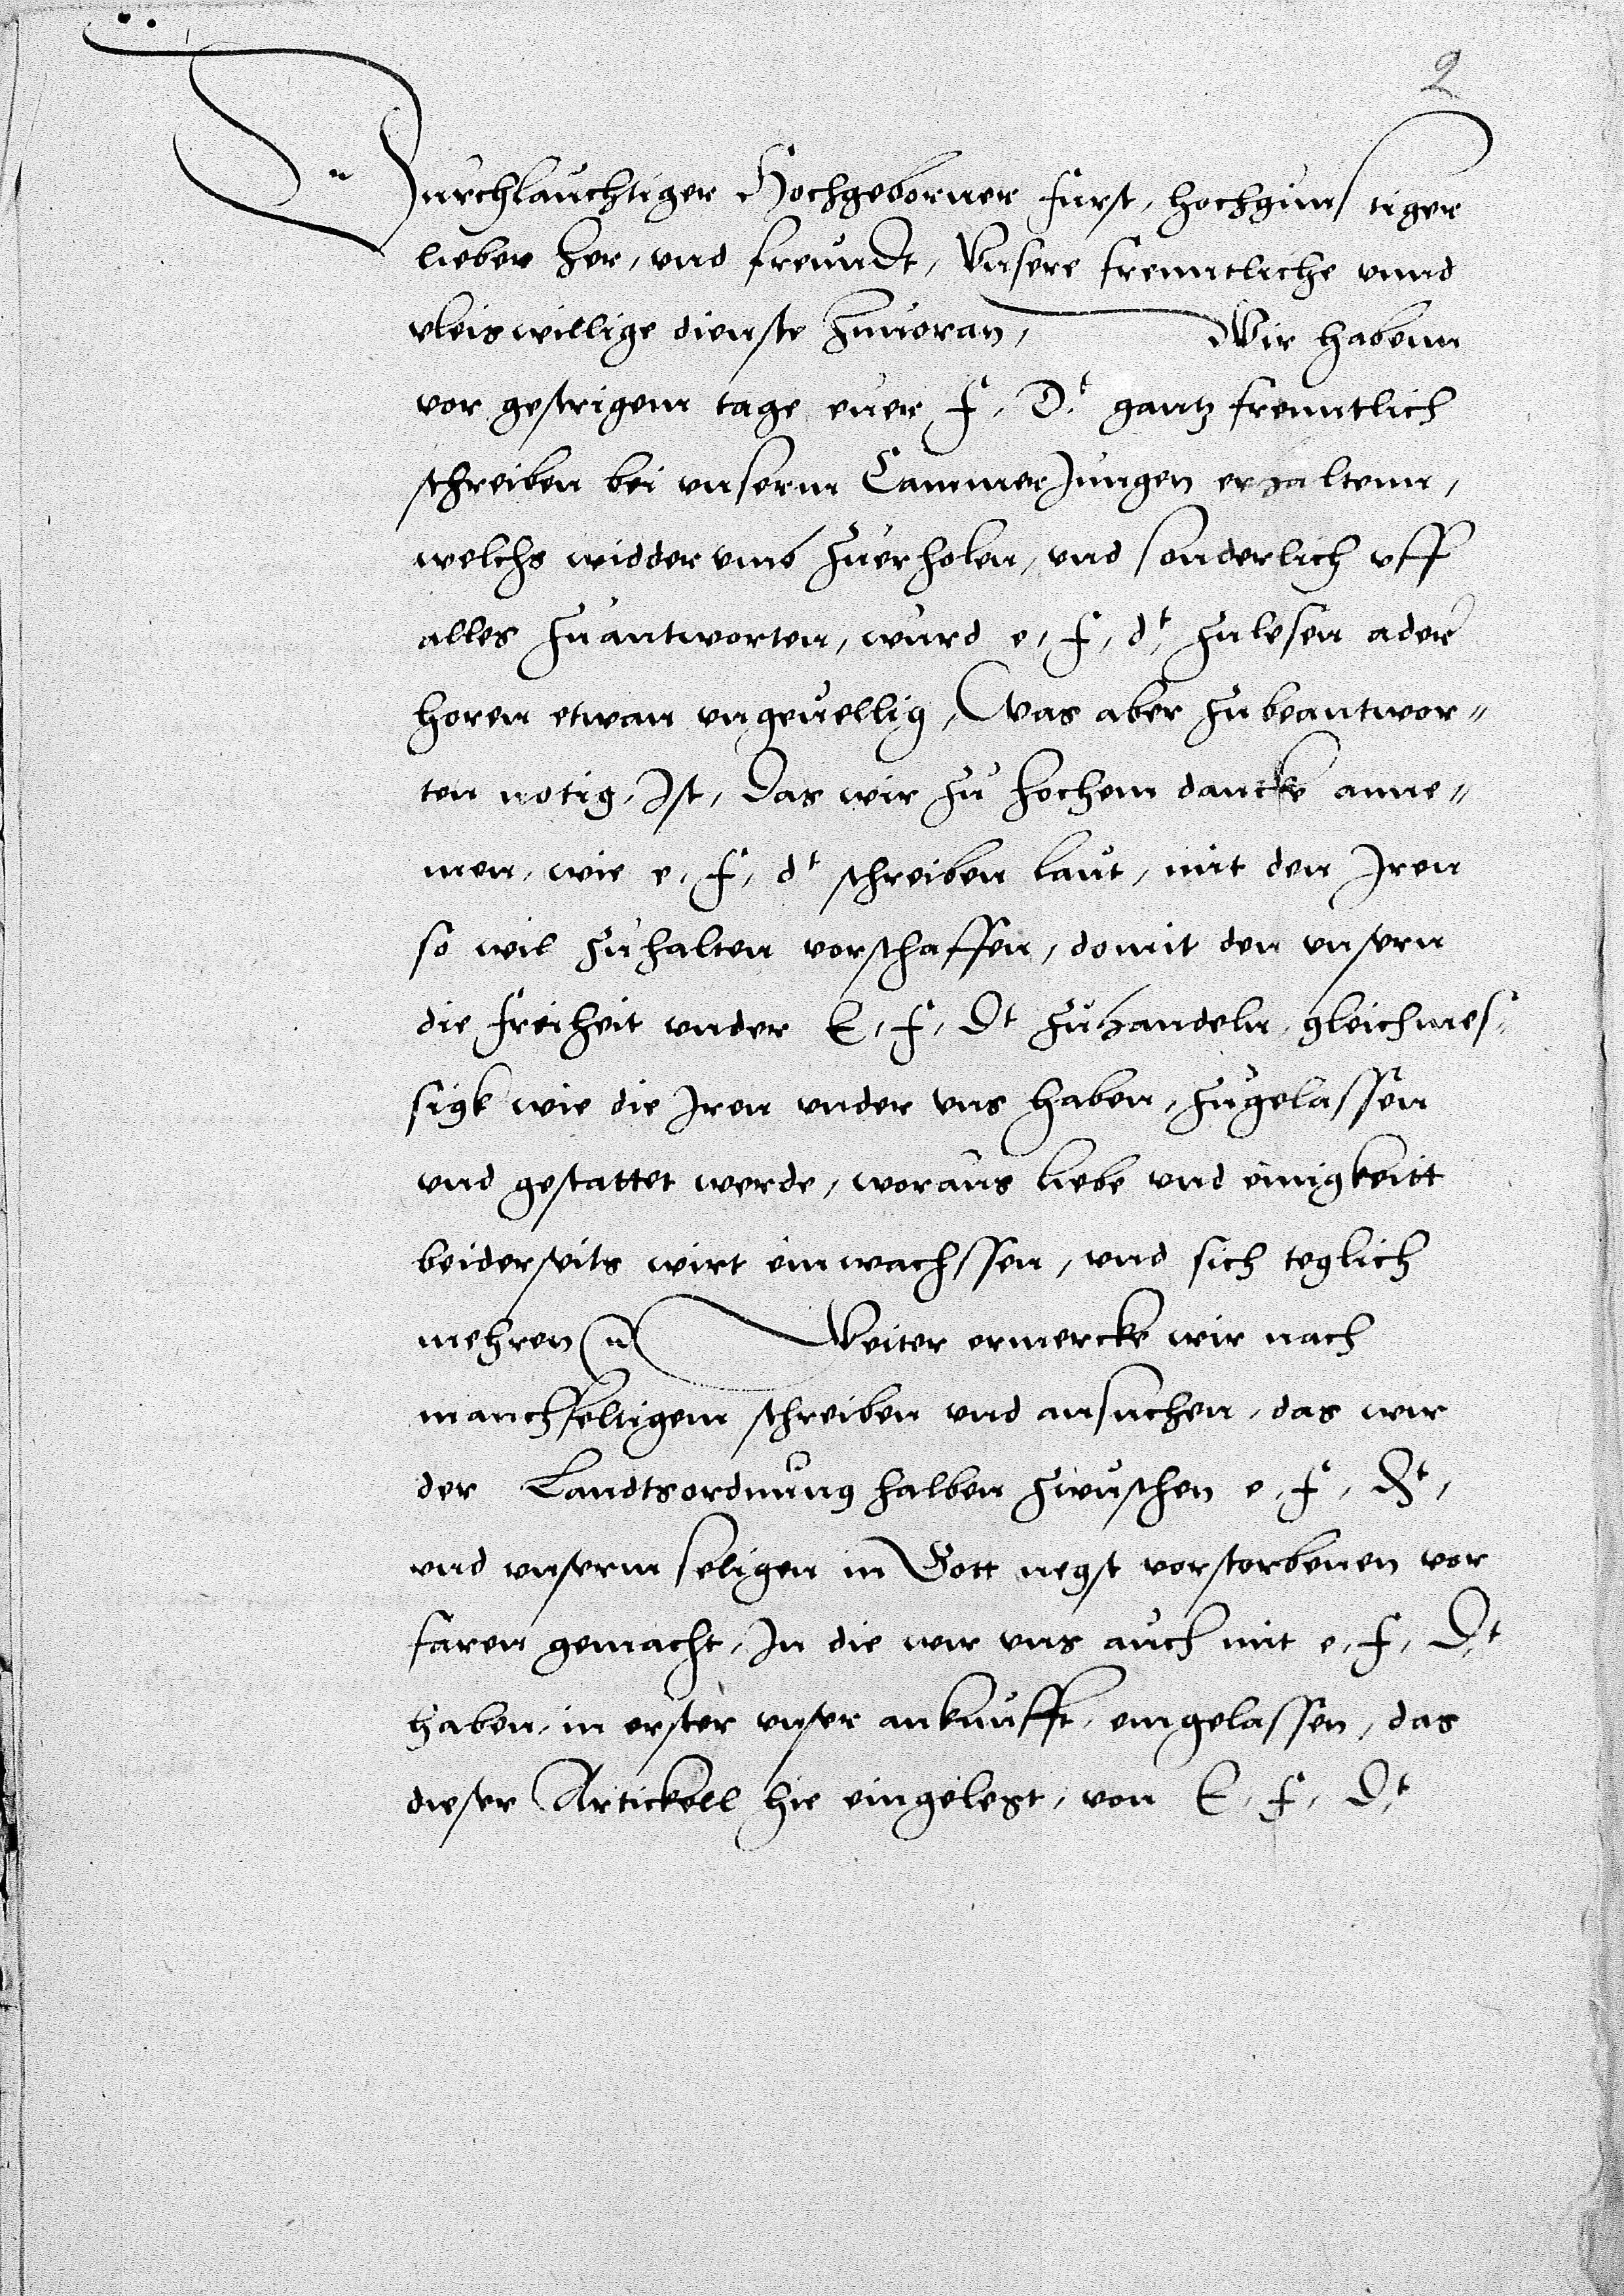 2
Durchlauchtiger Hochgeborner furst, hochgunstiger
lieber her, vnd freundt, Vnsere freuntliche vnnd
vleiswillige dienste zuuoran, Wir habenn
vor gestrigem tage euer f, D.t gantz freuntlich
schreiben bei vnserm CammerJungen erhaltenn,
welchs widdervmb zuerholen, vnd sonderlich vff
alles zuantworten, wurd e, f, d.t zulesen ader
horen etwan vngeuellig, Was aber zubeantwor„
ten notig, Ist, das wir zu hochem dancke anne„
men, wie e, f, dt schreiben laut, mit den Iren
so wil zuhalten vorschaffen, domit den vnsern
die freiheit vnder E, f, Dt zuhandeln, gleichmes„
sigk wie die Iren vnder vns haben, zugelassen
vnd gestattet werde, woraus liebe vnd einigkeitt
beiderseits wirt einwachssen, vnd sich teglich
mehren Weiter ermercke wir nach
manchfeltigem schreiben vnd ansuchen, das wir
der Landtsordnung halben zwuschen e, f, Dt,
vnd vnserm seligen in Gott negst vorstorbenen vor
faren gemacht, In die wir vns auch mit e, f, D.t
haben, in erster vnser ankunfft, eingelassen, das
dieser Artickell hie eingelegt, von E, f, D.t